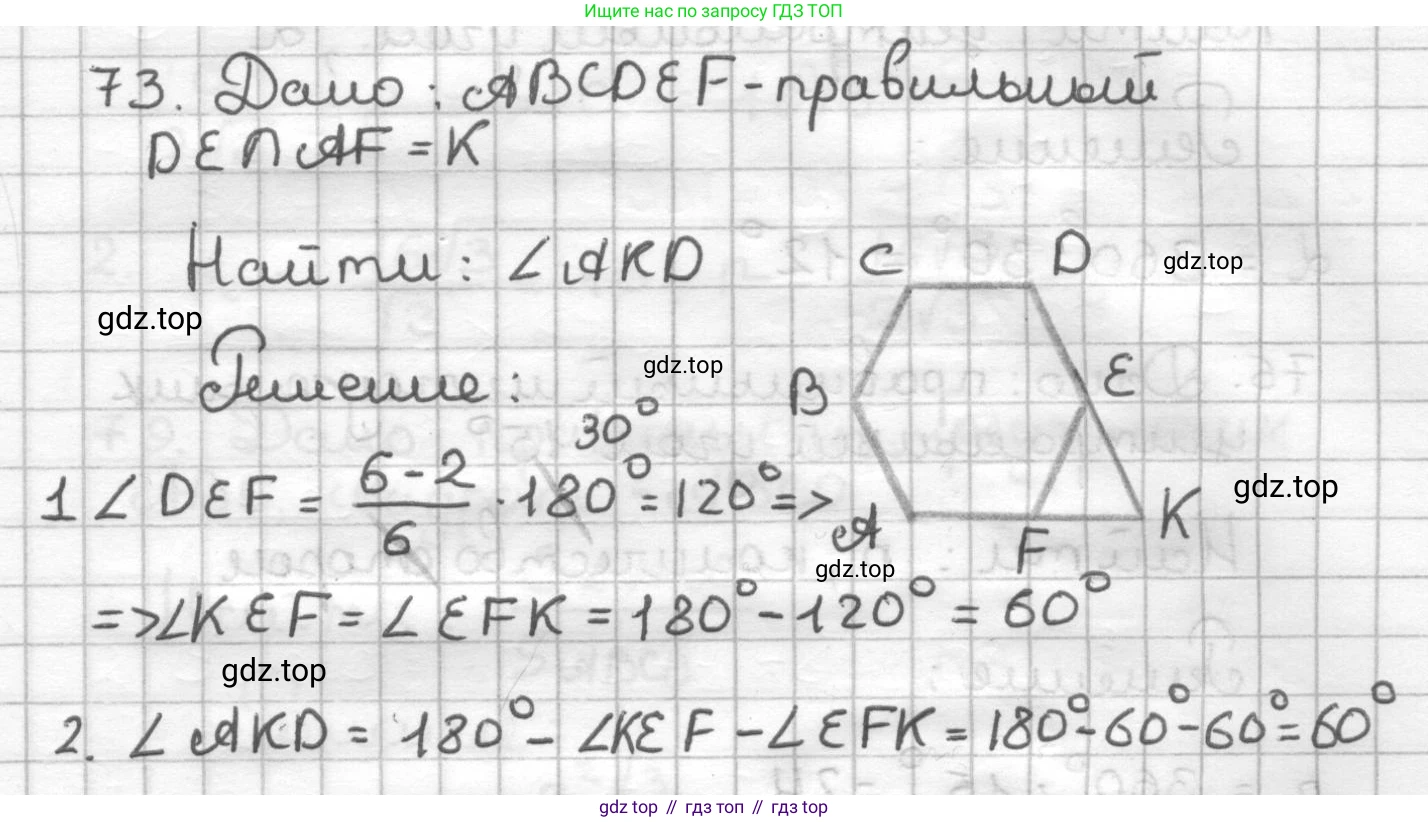 Ищите нас по запросу ГДЗ ТОП
73. Дано: ABCDEF - правильный
DE ∩ AF = K
Найти: ∠AKD
C D gdz.top
gdz.top
Решение:
gdz.top
B E
30°
1 ∠DEF = (6-2)/6 · 180° = 120° =>
gdz.top
A F K
gdz.top
=> ∠KEF = ∠EFK = 180° - 120° = 60°
gdz.top
2. ∠AKD = 180° - ∠KEF - ∠EFK = 180° - 60° - 60° = 60°
gdz top // гдз топ // гдз top